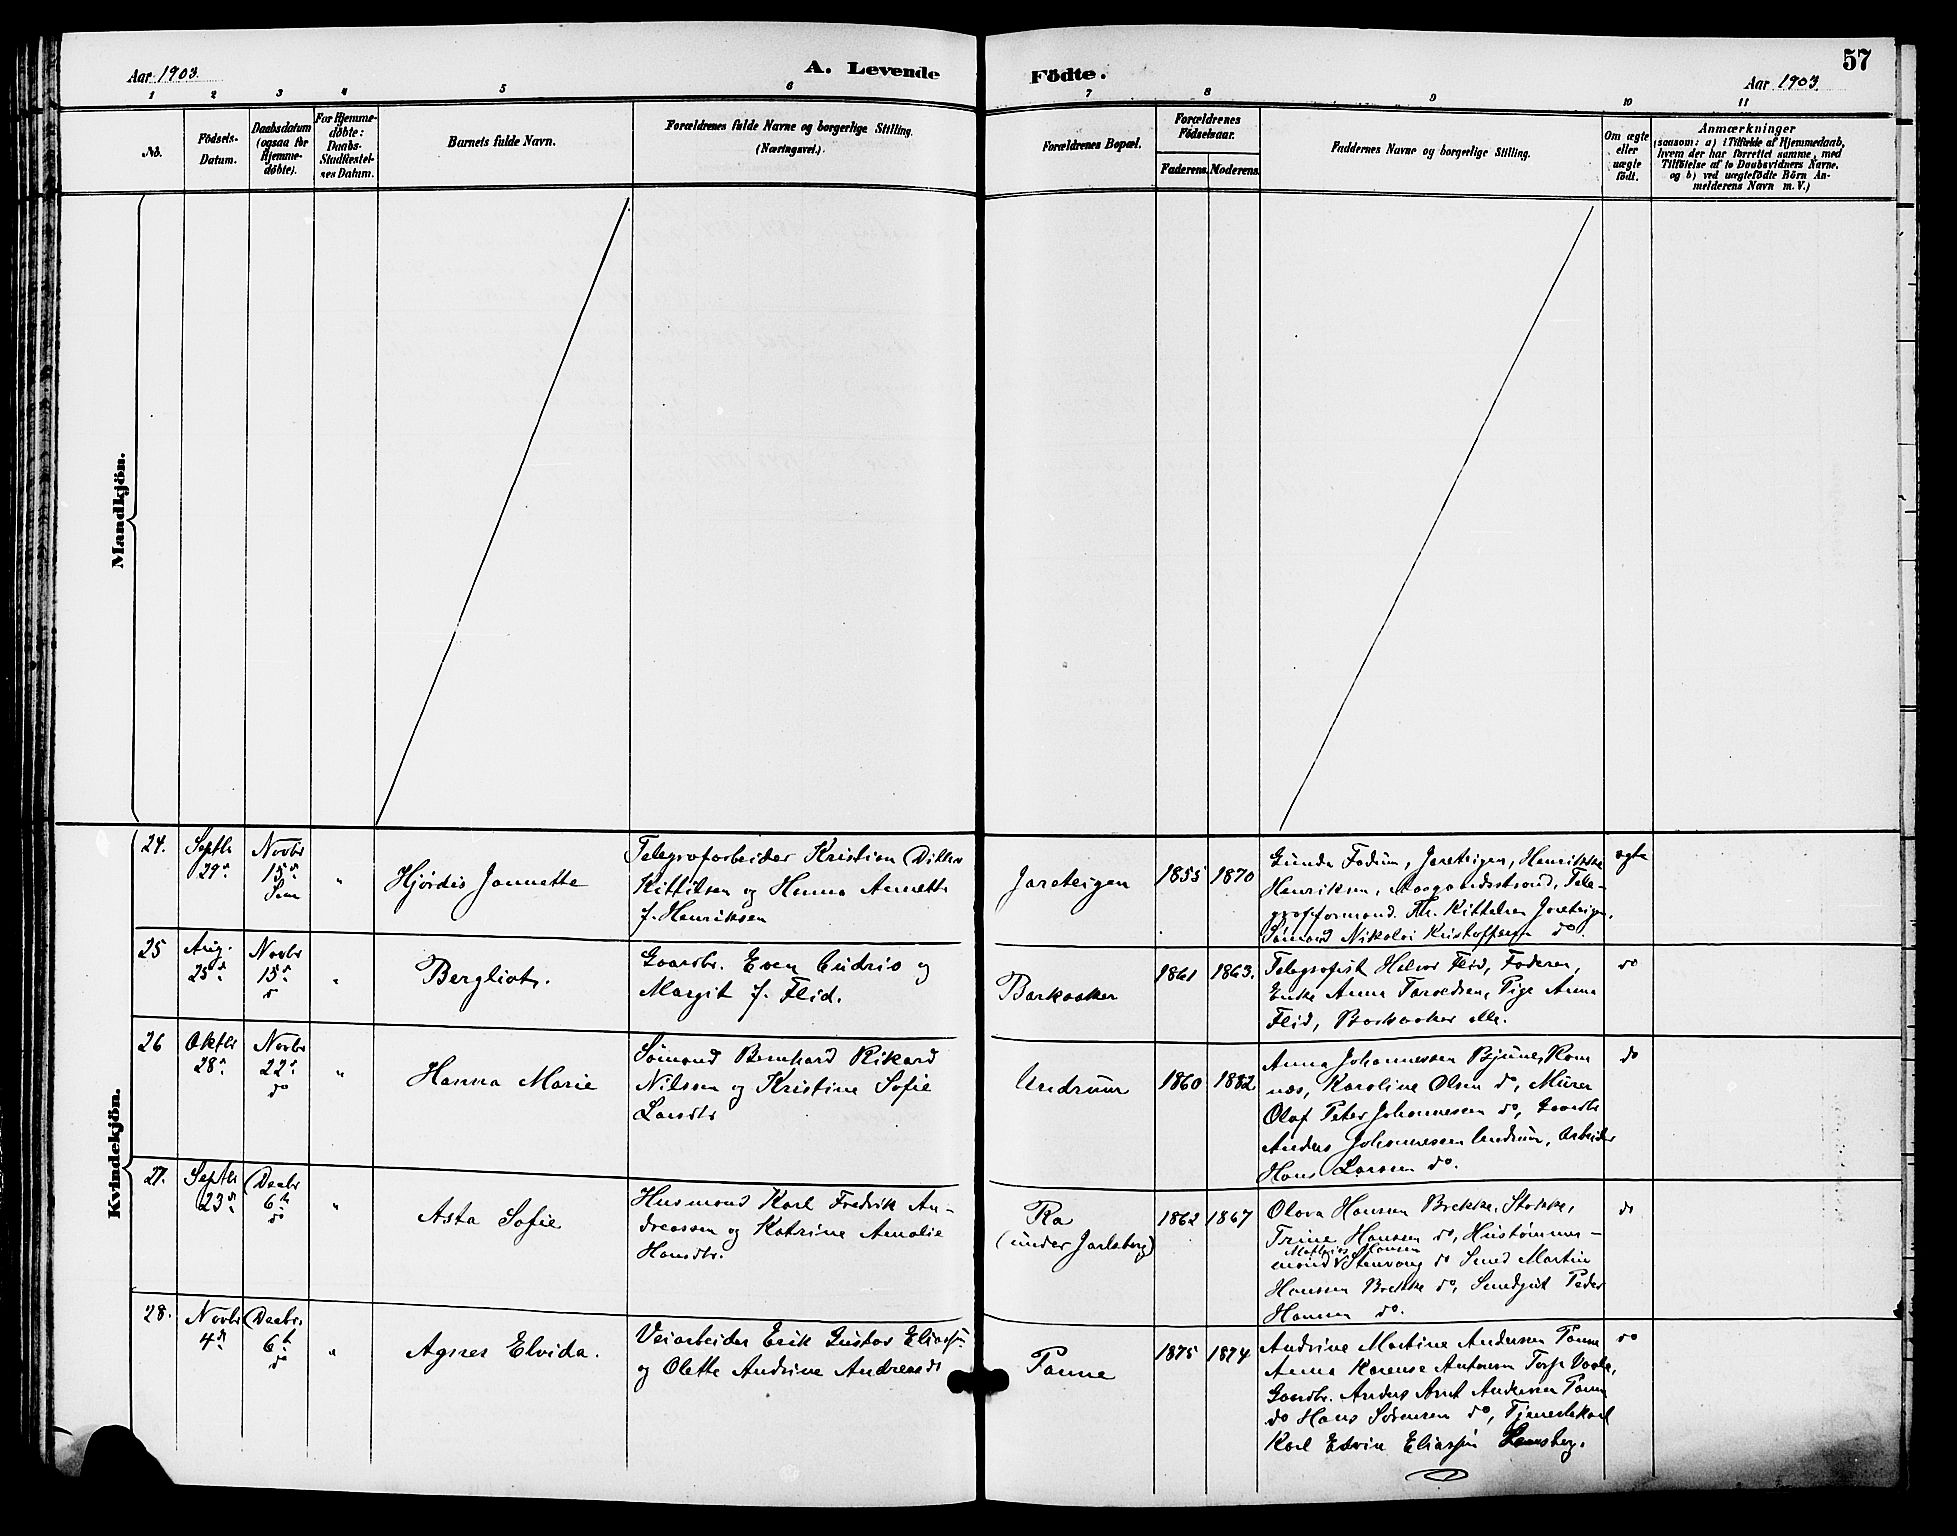 57
Aar 1903.
A. Levende
Födte.
Aar 1903
1 2 3 4 5 6 7 8 9 10 11
No.
Födsels-
Datum.
Daabsdatum
(ogsaa for
Hjemme-
döbte).
For Hjemme-
döbte:
Daabs-
Stadfæstel-
ses Datum.
Barnets fulde Navn.
Forældrenes fulde Navne og borgerlige Stilling.
(Næringsvei.)
Forældrenes Bopæl.
Forældrenes
Födselsaar.
Faderens. Moderens.
Faddernes Navne og borgerlige Stilling.
Om ægte
eller
uægte
födt.
Anmærkninger
(saasom: a) i Tilfælde af Hjemmedaab,
hvem der har forrettet samme, med
Tilföielse af to Daabsvidners Navne.
og b) ved uægtefödte Börn An-
melderens Navn m. V.)
Mandkjön.
Kvindekjön.
24.
Septb
29d.
Novbr
15d.
Sem
"
Hjørdis Jannette
Telegrafarbeider Kristian Ditlev
Kittilsen og Hanna Annette
f. Henriksen
Jareteigen
1855 1870
Gunda Fodum, Jareteigen, Henrikke
Henriksen, Aasgaardsstrand, Tele-
grafformand. Th. Kittelsen Jareteigen.
Sømand Nikolai Kristoffersen do.
ægte
25
Aug.
25d.
Novbr
15d.
d
"
Bergliot.
Gaardbr. Even Undrio og
Margit f. Flid.
Barkaaker
1861 1863.
Telegrafist Helvor Flid, Faderen,
Enke Anna Taraldsen, Pige Anna
Flid, Barkaaker alle.
do
26
Oktb
28d.
Novbr
22d.
do
"
Hanna Marie
Sømand Bernhard Rikard
Nilssen og Kristine Sofie
Larsdtr
Undrum
1860 1882
Anna Johannessen Bjune, Ram
næs, Karoline Olsen do, Murer
Olaf Peter Johannessen do, Gaardbr
Anders Johannessen Undrum, Arbeider
Hans Larsen do.
do
27.
Septb
23d.
Decbr
6th
do
"
Asta Sofie
Husmand Karl Fredrik An-
dreassen og Katrine Amalie
Hansdtr.
Ra
(under Jarlsberg)
1862 1867
Olava Hansen Brekke, Stokke,
Trine Hansen do, Hustømmer-
Mathias Hansen
mand V Stenvang do Smed Martin
Hansen Brekke do, Smedgut Peder
Hansen do.
do
28.
Novbr
4d.
Decbr.
6th
do
"
Agnes Elvida.
Veiarbeider Erik Gustav Eliassen
og Olette Andrine Andreasdt
Tanne
1875 1874
Andrine Martine Andersen Tanne
Anna Karense Antonsen Torp Vaale,
Gaardbr. Anders Arnt Andersen Tanne
do Hans Sørensen do, Tjenestekarl
Karl Edvin Eliassen
do